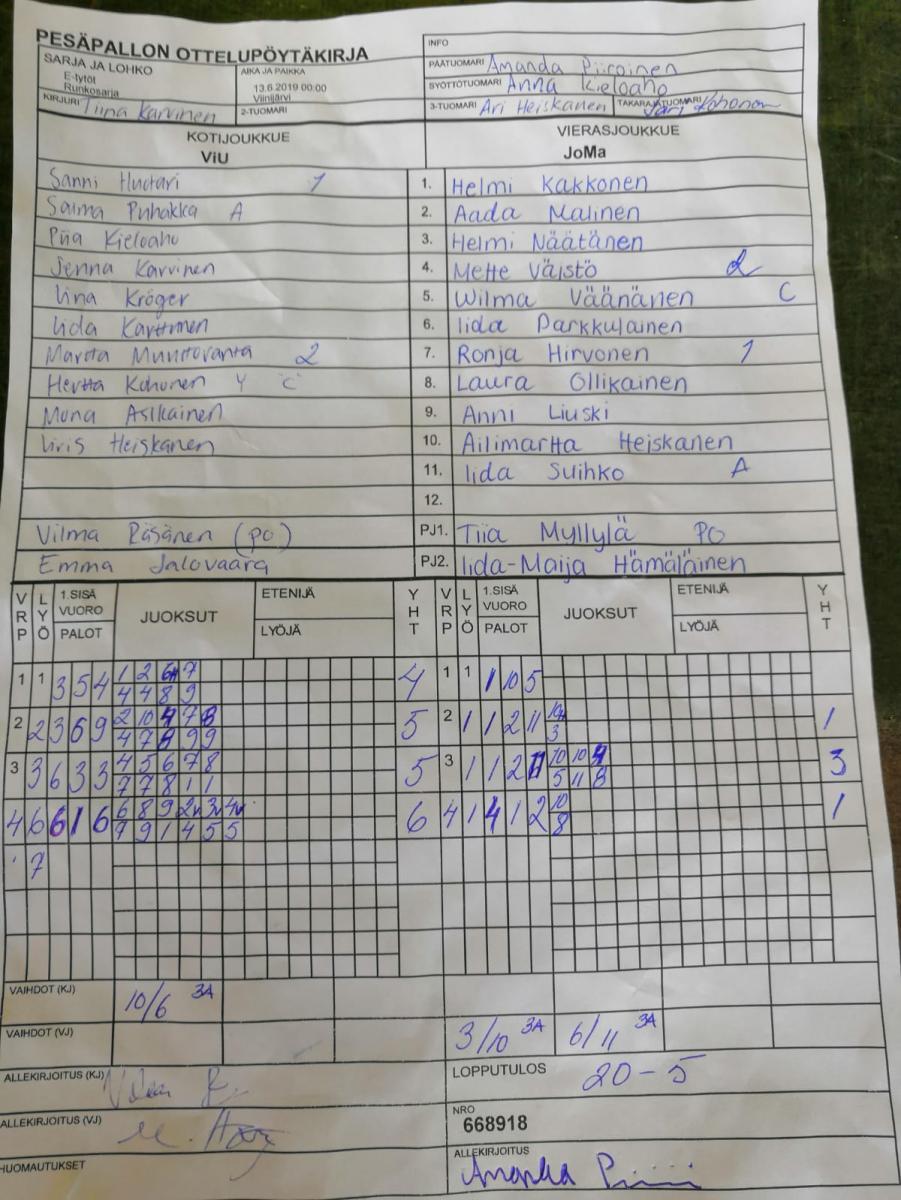 PESÄPALLON OTTELUPÖYTÄKIRJA
INFO
SARJA JA LOHKO
E-tytöt
Runkosarja
AIKA JA PAIKKA
13.6.2019 00:00
Viinijärvi
PÄÄTUOMARI Amanda Piiroinen
SYÖTTÖTUOMARI Anna Kieloaho
KIRJURI Tiina Karvinen
2-TUOMARI
3-TUOMARI Ari Heiskanen TAKARAJATUOMARI Jari Kohonen
KOTIJOUKKUE
ViU
VIERASJOUKKUE
JoMa
Sanni Huotari 1 1. Helmi Kakkonen
Saima Puhakka A 2. Aada Malinen
Piia Kieloaho 3. Helmi Näätänen
Jenna Karvinen 4. Mette Väistö 2
Iina Kröger 5. Wilma Väänänen C
Iida Karttunen 6. Iida Parkkulainen
Martta 2 7. Ronja Hirvonen 1
Hertta Kohonen C 8. Laura Ollikainen
Muna Asikainen 9. Anni Liuski
Iiris Heiskanen 10. Ailimartta Heiskanen
11. Iida Suihko A
12.
Vilma Räsänen (po) PJ1. Tiia Myllylä PO
Emma Jalovaara PJ2. Iida-Maija Hämäläinen
VRP LYÖ 1.SISÄ VUORO PALOT JUOKSUT ETENIJÄ LYÖJÄ YHT VRP LYÖ 1.SISÄ VUORO PALOT JUOKSUT ETENIJÄ LYÖJÄ YHT
1 1 3 5 4 1 2 6 7 4 1 1 1 10 5
4 4 8 9
2 2 3 6 9 2 10 4 7 8 5 2 1 1 2 11 10 1
4 7 8 9 9 3
3 3 6 3 3 4 5 6 7 8 5 3 1 1 2 11 10 10 9 3
7 7 8 1 1 5 11 8
4 6 6 1 6 6 8 9 2 3 4 6 4 1 4 1 2 10 1
7 9 1 4 5 5 8
7
VAIHDOT (KJ) 10/6 3A
VAIHDOT (VJ) 3/10 3A 6/11 3A
ALLEKIRJOITUS (KJ)
LOPPUTULOS 20-5
ALLEKIRJOITUS (VJ)
NRO
668918
HUOMAUTUKSET
ALLEKIRJOITUS